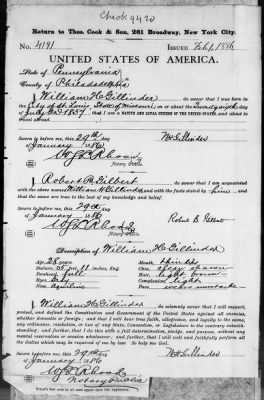 Check 9420
Return to Thos. Cook & Son, 261 Broadway, New York City.
No. 4191 Issued Feb 1, 1886
UNITED STATES OF AMERICA.
State of Pennsylvania
County of Philadelphia
I William H. Gillinder do swear that I was born in
the City of St. Louis, State of Missouri, on or about the twenty sixth day
of July 1857 that I am a NATIVE AND LOYAL CITIZEN OF THE UNITED STATES, and
about
Sworn to before me, this 29th day
of January 1886
Notary Public
I Robert B. Gilbert do swear, that I am acquainted
with the above named William H. Gillinder and with the facts stated by him and
that the same are true to the best of my knowledge and belief.
Sworn to before me, this 29th day
of January 1886
Robt B Gilbert
Notary Public
Description of William H. Gillinder
Age, 28 years
Stature, 5 feet 11 inches, Eng.
Forehead, full
Eyes, grey
Nose, aquiline
Mouth,
Chin,
Hair, light brown
Complexion, light
Face,
I William H. Gillinder do solemnly swear that I will support,
protect, and defend the Constitution and Government of the United States against all enemies,
whether domestic or foreign; and that I will bear true faith, allegiance, and loyalty to the same,
any ordinance, resolution, or law of any State, Convention, or Legislature to the contrary notwith-
standing; and further, that I do this with a full determination, pledge, and purpose, without any
mental reservation or evasion whatsoever; and further, that I will well and faithfully perform all
the duties which may be required of me by law. So help me God.
Sworn to before me, this 29th day
of January 1886
Notary Public